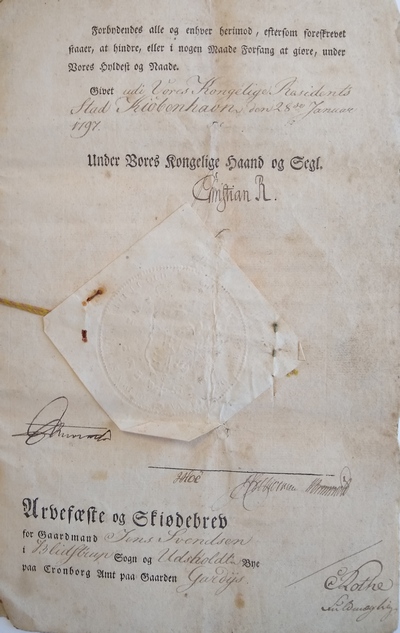 Forbydendes alle og enhver herimod, eftersom foreskrevet
staaer, at hindre, eller i nogen Maade Forfang at giøre, under
Vores Hyldest og Naade.
Givet udi Vores Kongelige Residents
Stad Kiöbenhavn, den 28de Januar
1797.
Under Vores Kongelige Haand og Segl.
Christian R.
Arvefæste og Skiødebrev
for Gaardmand Jens Svendsen
i Blidstrup Sogn og Udsholdt Bye
paa Cronborg Amt paa Gaarden
Rothe